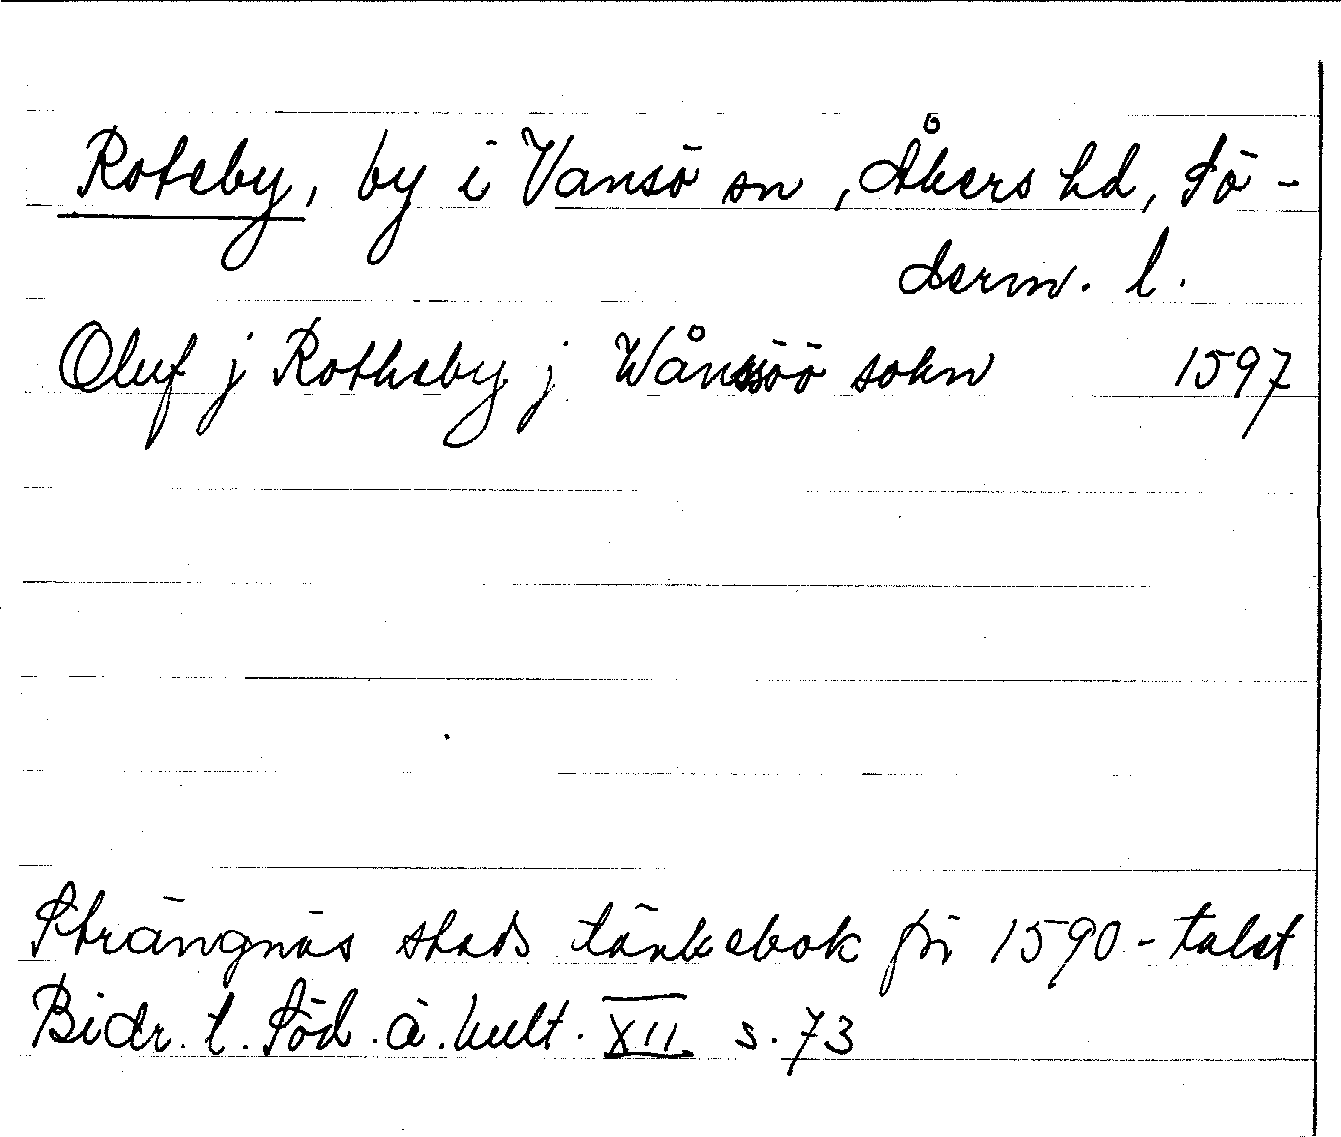 Roteby, by i Vansö sn, Åkers hd, Sö-
derm. l.
Oluf j Rotheby j Wånsöö sokn 1597
Strängnäs stads tänkebok för 1590-talet
Bidr. t. Söd. ä. kult. XII s. 73